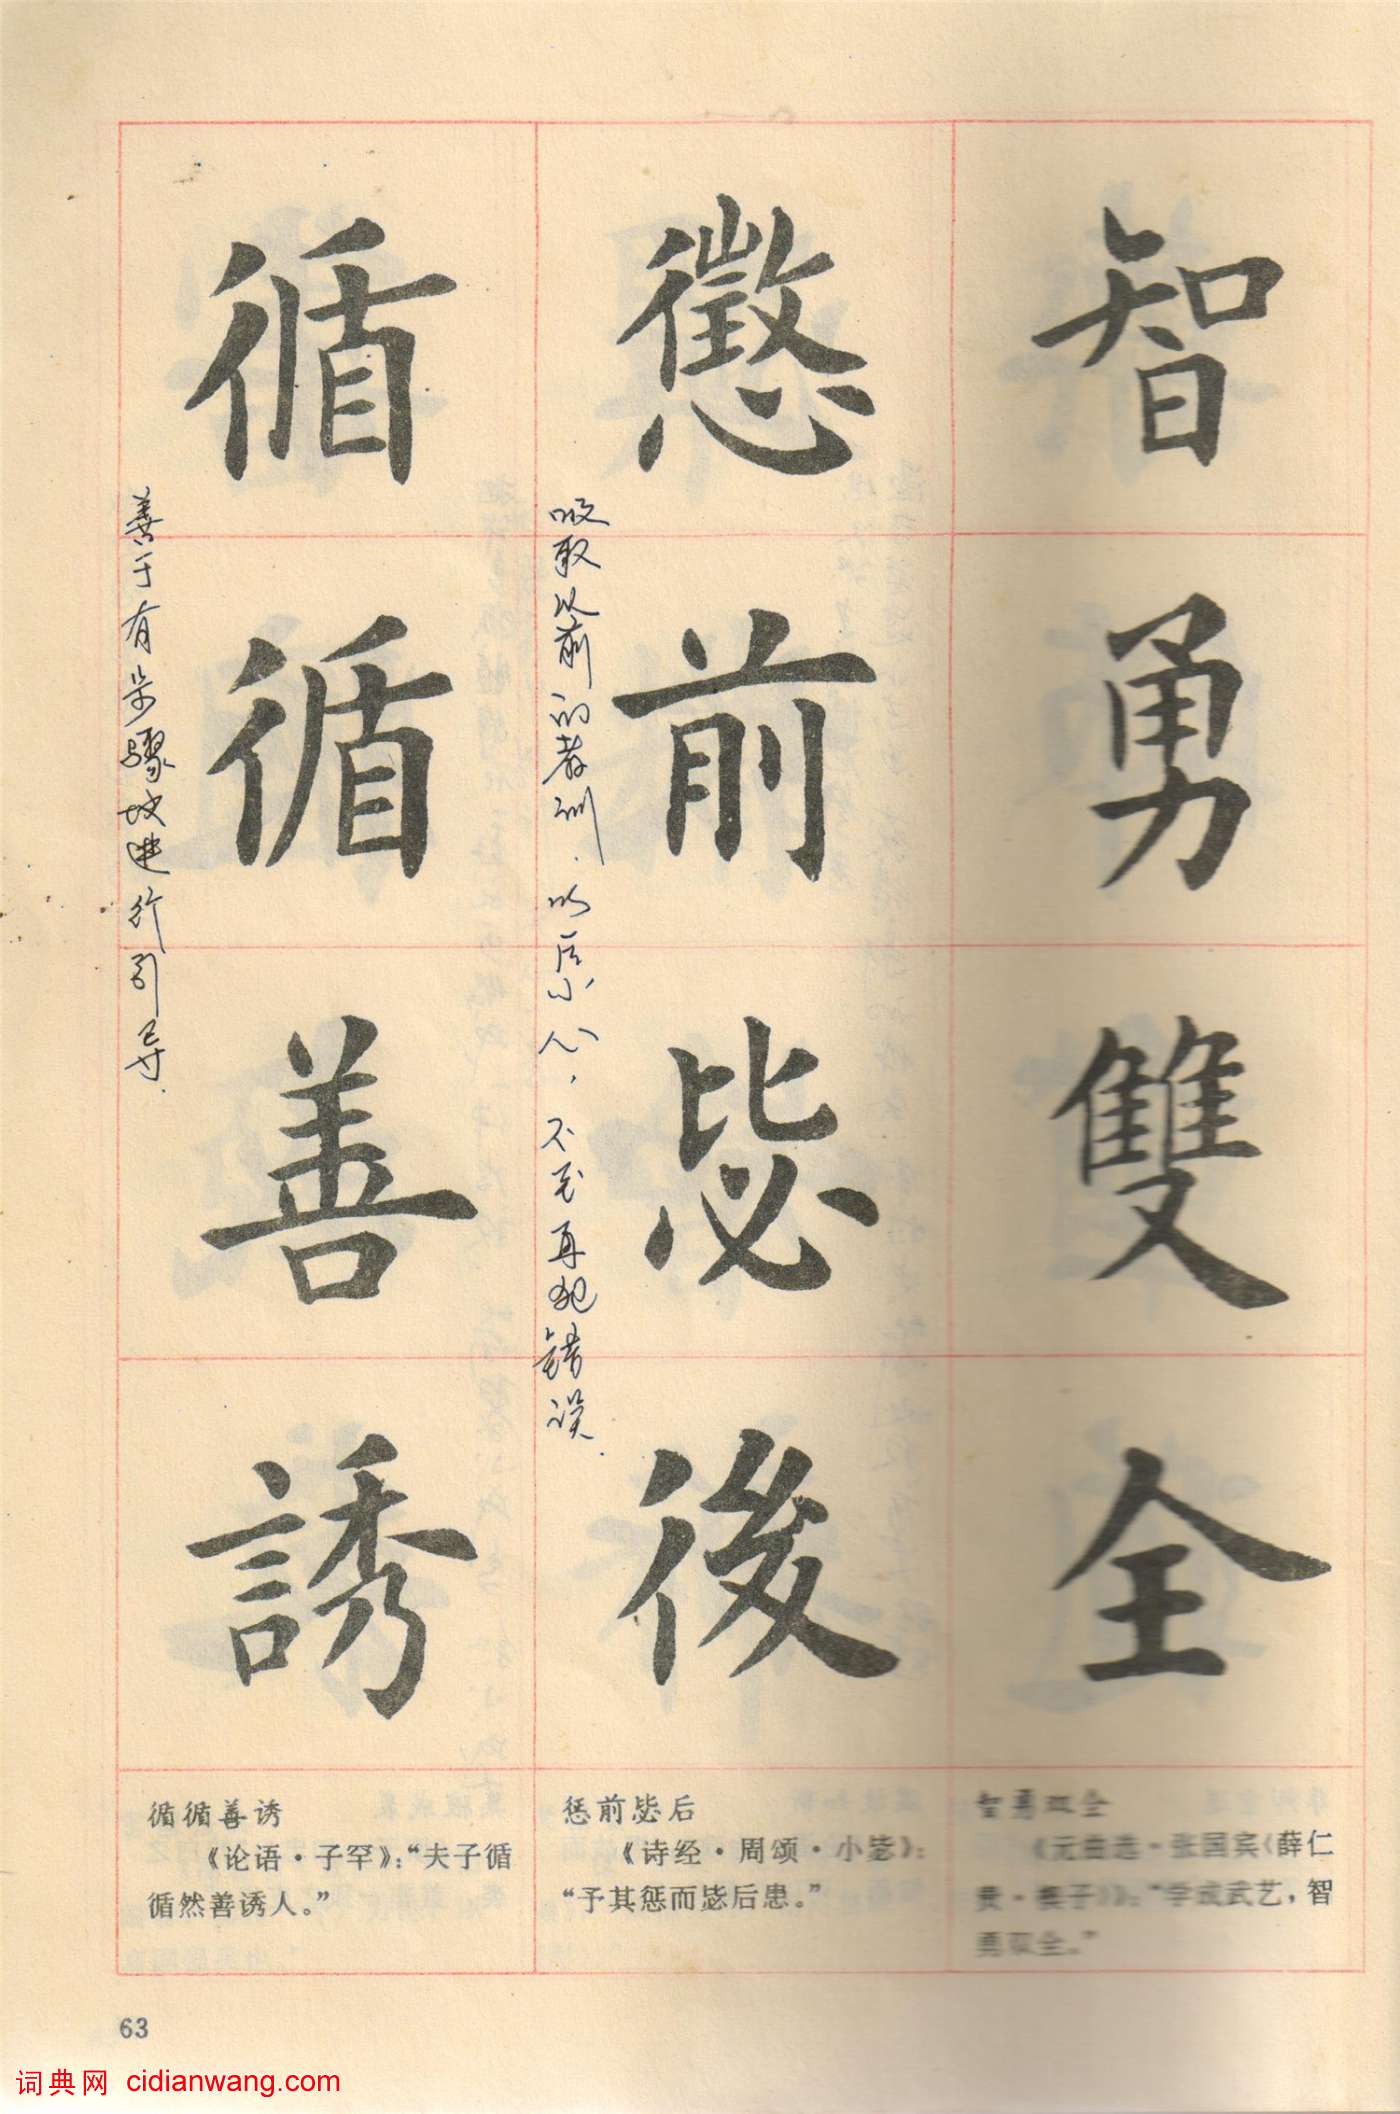 智勇雙全
懲前毖後
循循善誘
吸取以前的教训.以后小心,不至再犯错误.
善于有步骤地进行引导.
智勇双全
《元曲选·张国宾〈薛仁
贵·楔子〉》:“学成武艺,智
勇双全。”
惩前毖后
《诗经·周颂·小毖》:
“予其惩而毖后患。”
循循善诱
《论语·子罕》:“夫子循
循然善诱人。”
63
词典网 cidianwang.com